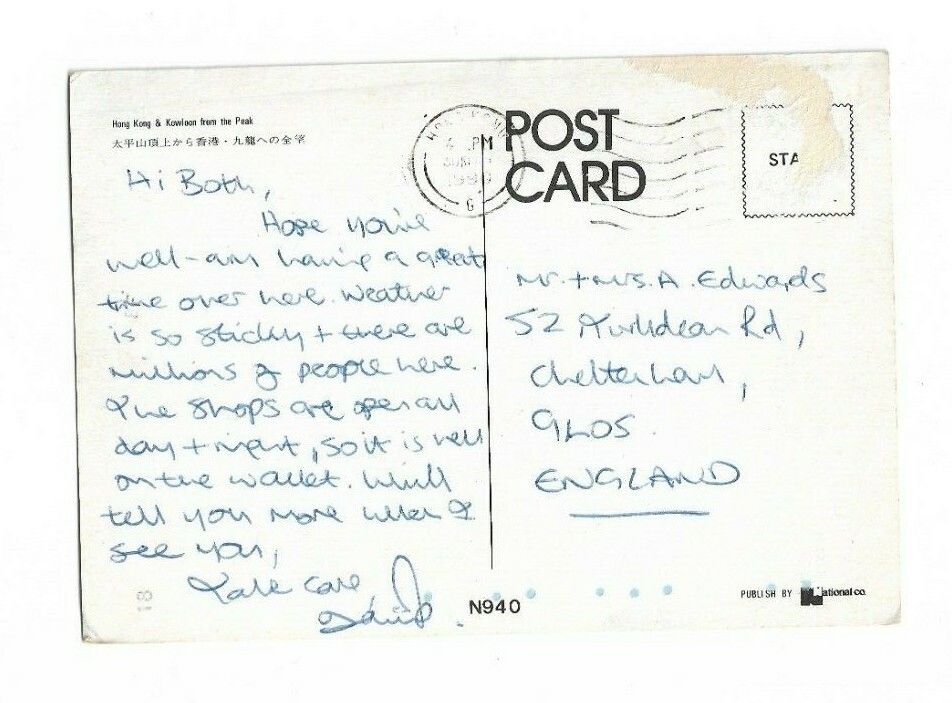 Hong Kong & Kowloon from the Peak
太平山頂上から香港・九龍への全望
Hi Both,
Hope you're
well - am having a great
time over here. Weather
is so sticky + there are
millions of people here.
The shops are open all
day + night, so it is hell
on the wallet. Will
tell you more when I
see you,
Take care,
David.
HONG KONG
PM
G
POST
CARD
STA
Mr. + Mrs. A. Edwards
52 Rd,
Cheltenham,
GLOS.
ENGLAND
18
N940
PUBLISH BY National co.